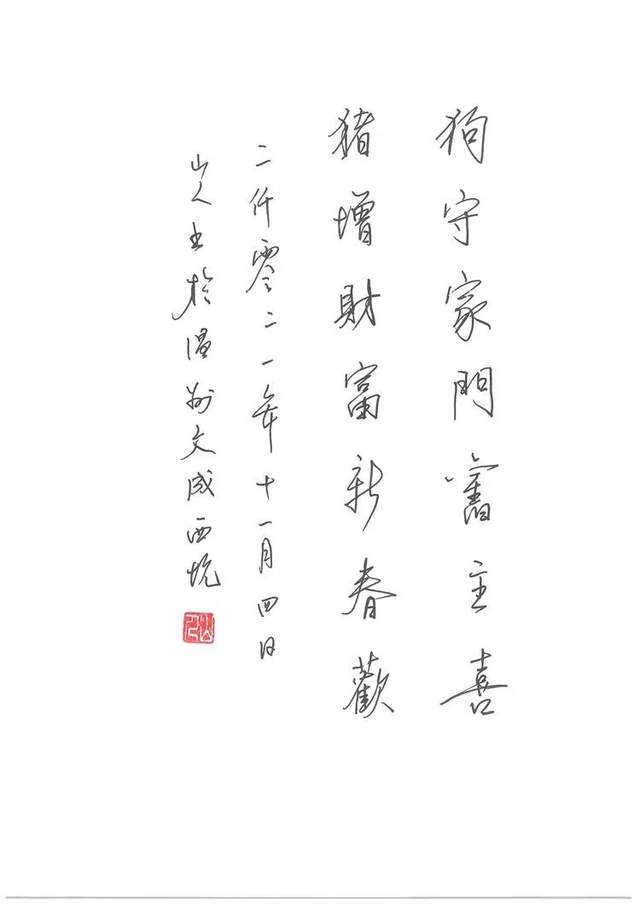 狗守家門舊主喜
猪增財富新春歡
二仟零二一年十一月四日
山人書於温州文成西坑
山人